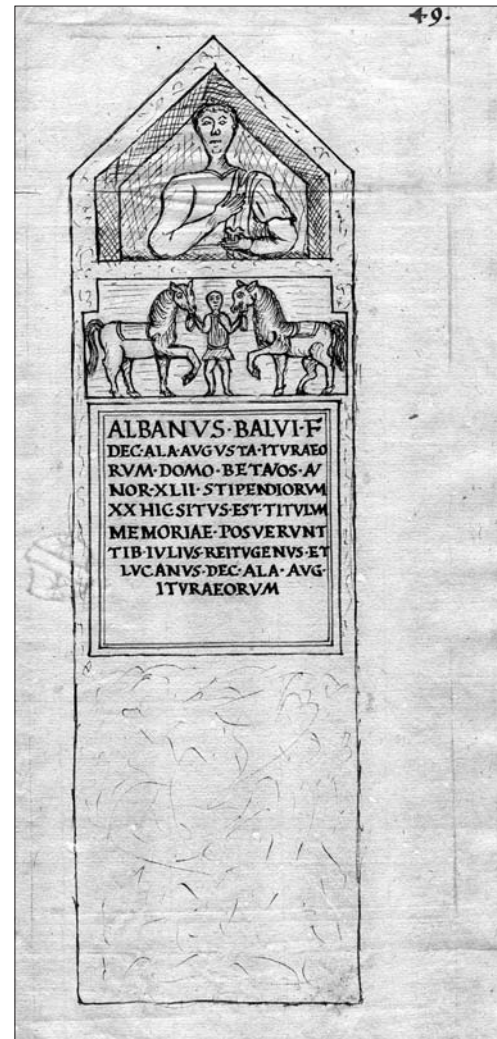 49.
ALBANVS·BALVI·F
DEC·ALA·AVGVSTA·ITVRAEO
RVM·DOMO·BETAVOS·AN
NOR·XLII·STIPENDIORVM
XX HIC SITVS·EST·TITVLVM
MEMORIAE·POSVERVNT
TIB·IVLIVS·REITVGENVS·ET
LVCANVS·DEC·ALA·AVG·
ITVRAEORVM